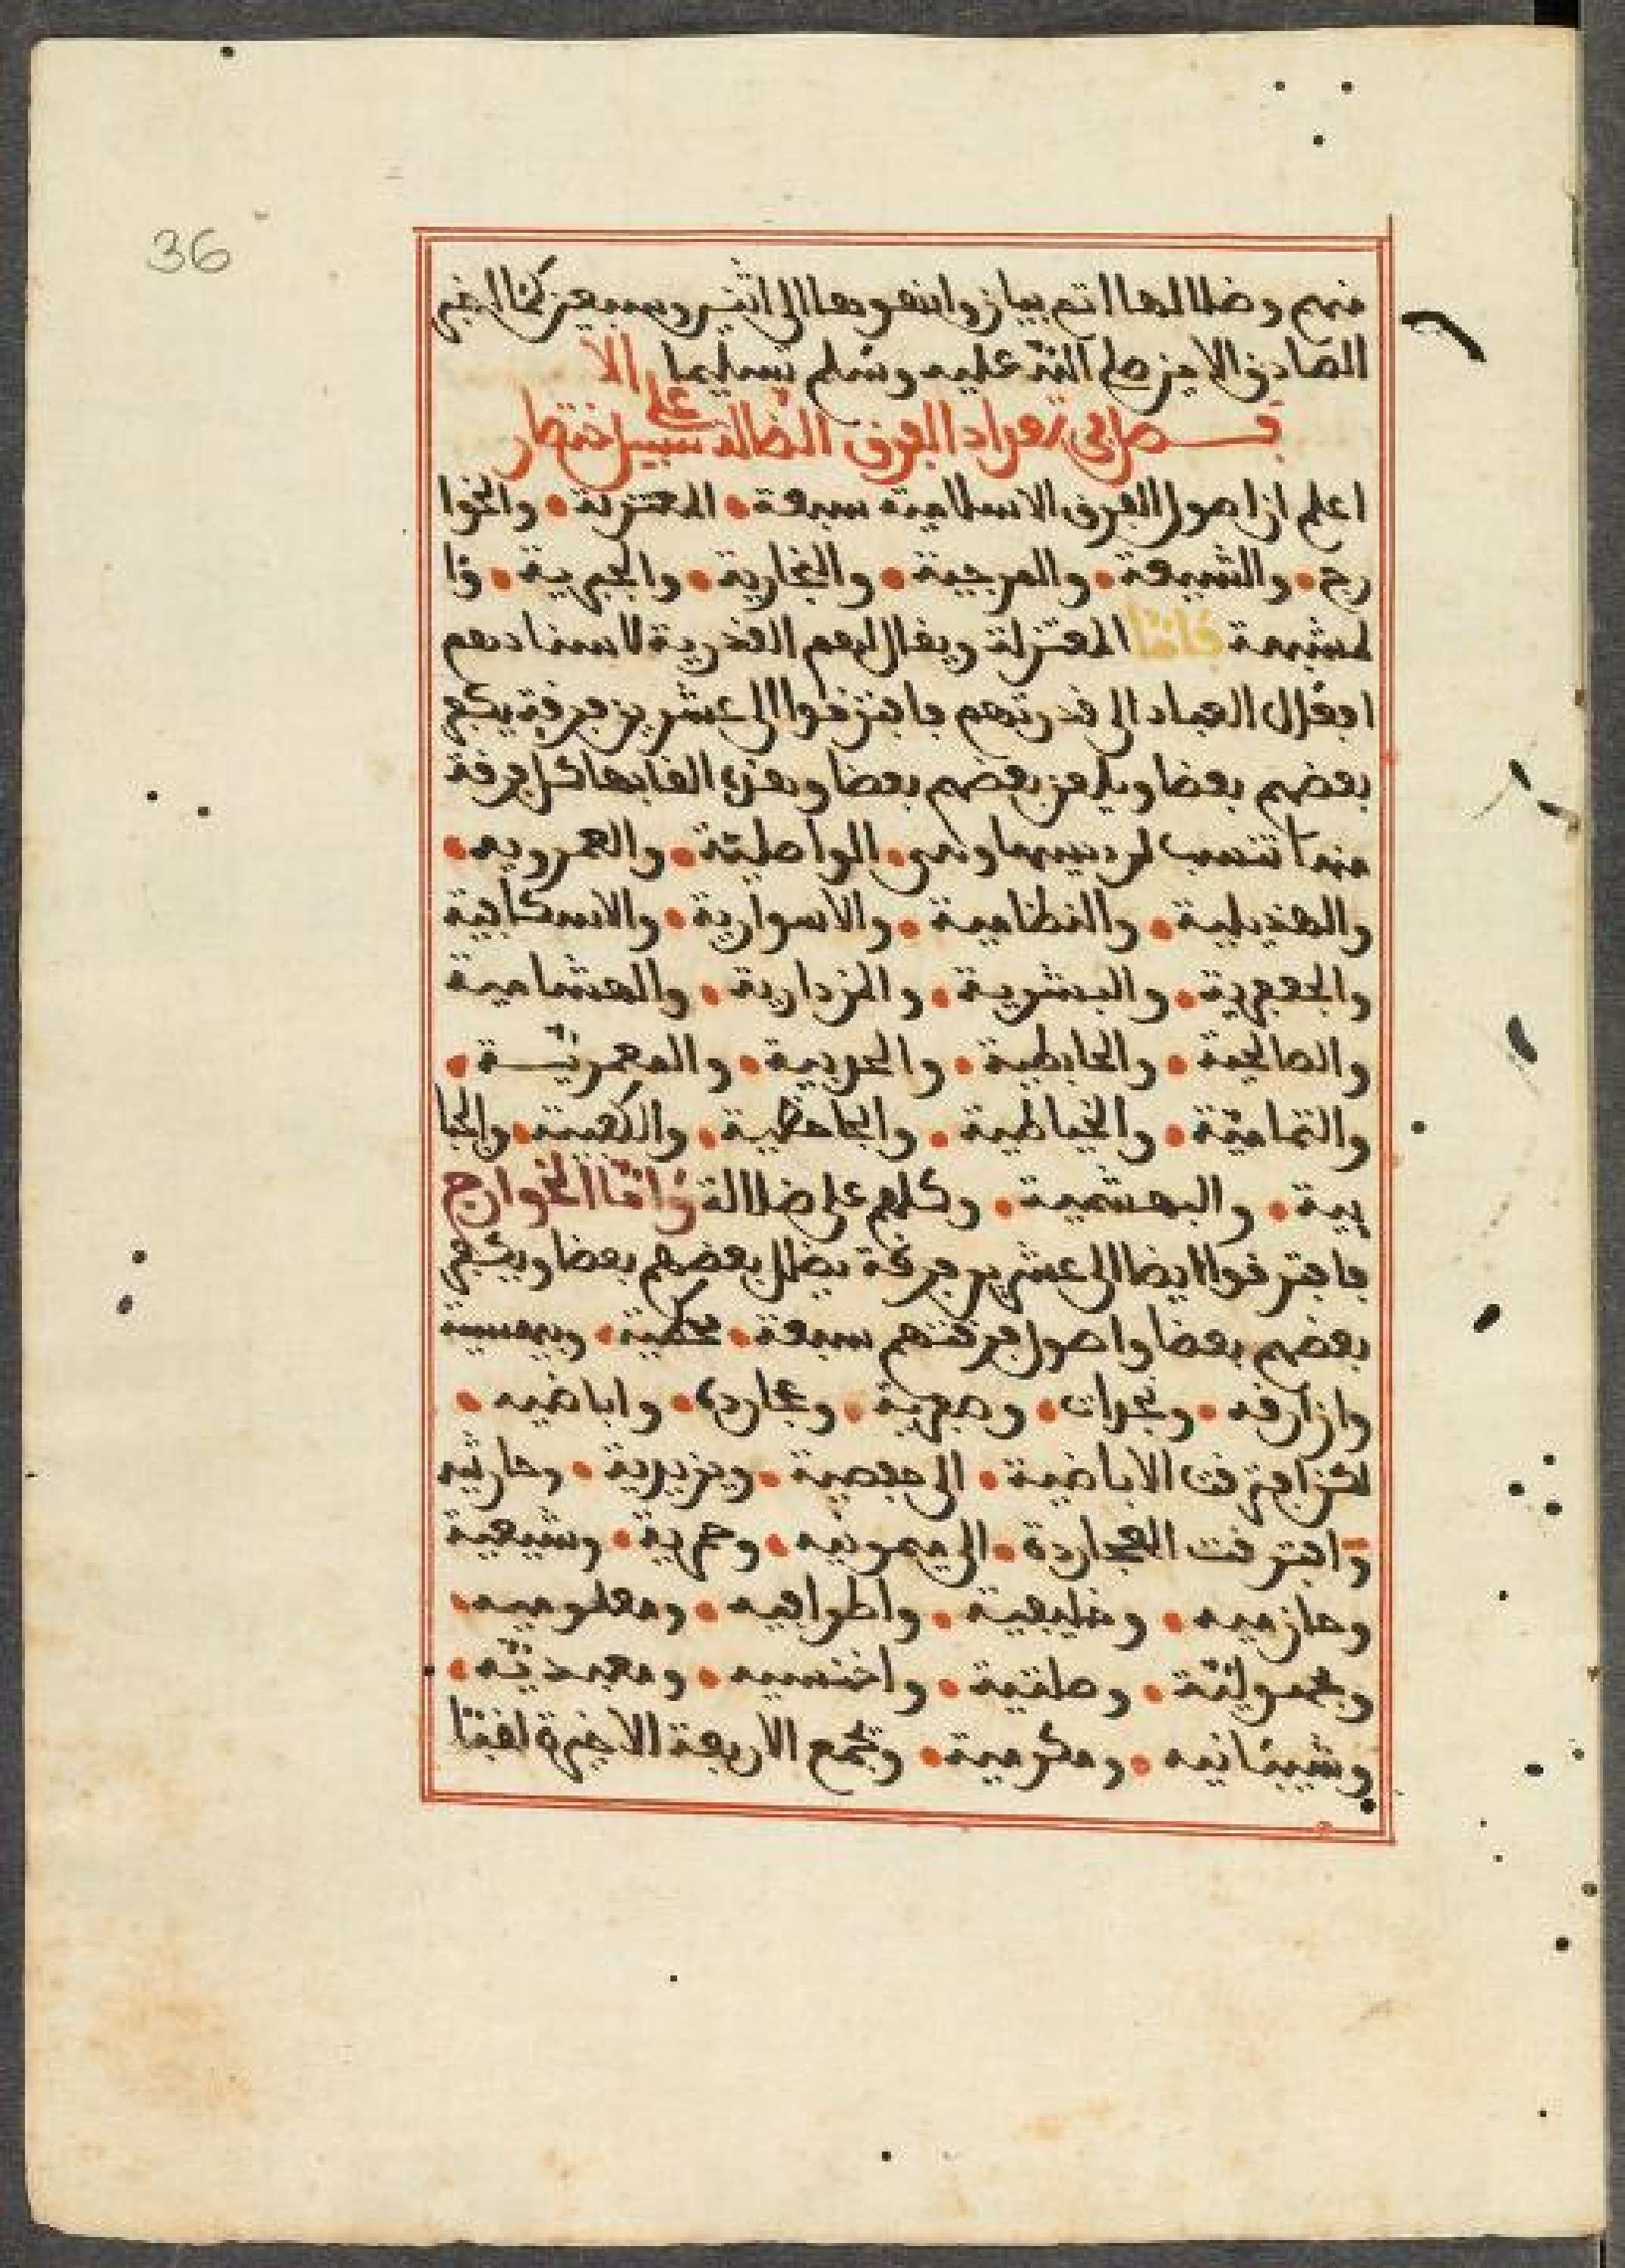 36
منهم وضلالها اتم بيان وانتهوبها الى اثنين وسبعين كما اخبر
الصادق الامين صلى الله عليه وسلم تسليما
فصل في تعداد الفرق الضالة على سبيل الاختصار
اعلم ان اصول الفرق الاسلامية سبعة • المعتزلة • والخوا
رج • والشيعة • والمرجية • والنجارية • والجبرية • وا
لمشبهة فاما المعتزلة ويقال لهم القدرية لاسنادهم
افعال العباد الى قدرتهم فافترقوا الى عشرين فرقة يكفر
بعضهم بعضا ويلعن بعضهم بعضا وهذه القابها كل فرقة
منها تنسب لرييسها وهي • الواصلية • والعمروية •
والهذيلية • والنظامية • والاسوارية • والاسكافية
والجعفرية • والبشرية • والمزدارية • والهشامية
والصالحية • والحابطية • والحدبية • والمعمرية •
والثمامية • والخياطية • والجاحظية • والكعبية • والجبا
يية • والبهشمية • وكلهم على ضلالة واما الخوارج
فافترقوا ايضا الى عشرين فرقة يضلل بعضهم بعضا ويكفر
بعضهم بعضا واصول فرقتهم سبعة • محكمية • وبيهسية
وازارقه • ونجدات • وصفرية • وعجاردة • واباضيه •
لكن افترقت الاباضية • الى حفصية • ويزيدية • وحارثيه
وافترقت العجاردة • الى ميمونيه • وحمزية • وشعيبية
وحازميه • وخليفية • واطرافيه • ومعلوميه •
ومجهولية • وصلتية • واخنسيه • ومعبدية •
وشيبانيه • ومكرمية • وتجمع الاربعة الاخيرة لقبنا